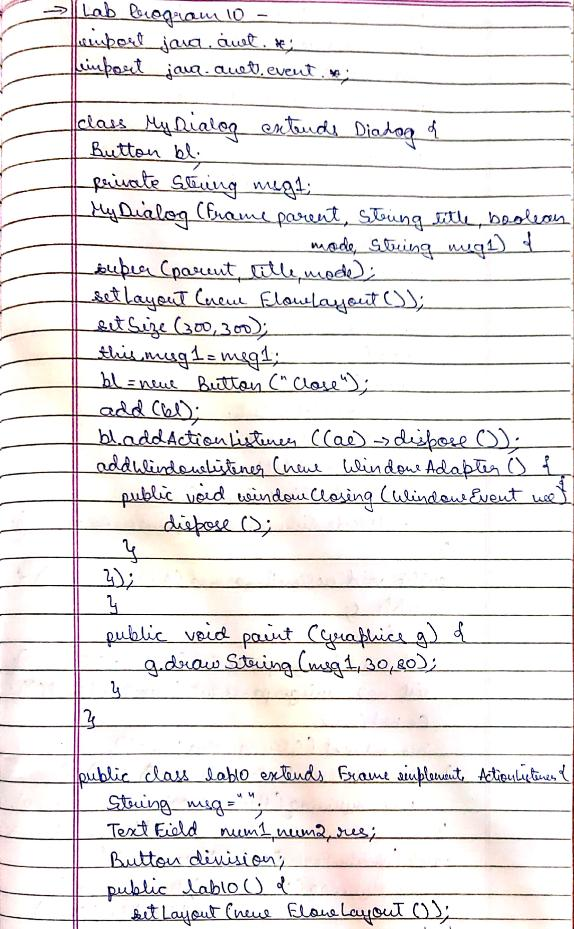 → Lab Program 10 -
import java.awt.*;
import java.awt.event.*;
class MyDialog extends Dialog {
Button bl;
private String msg1;
MyDialog (Frame parent, String title, boolean
mode, String msg1) {
super (parent, title, mode);
setLayout (new FlowLayout ());
setSize (300,300);
this.msg1 = msg1;
bl = new Button ("Close");
add (bl);
bl.addActionListener ((ae) → dispose ());
addWindowListener (new WindowAdapter () {
public void windowClosing (WindowEvent we) {
dispose ();
}
});
}
public void paint (Graphics g) {
g.drawString (msg1, 30, 80);
}
}
public class lab10 extends Frame implement ActionListener {
String msg = " ";
TextField num1, num2, res;
Button division;
public lab10 () {
setLayout (new FlowLayout ());